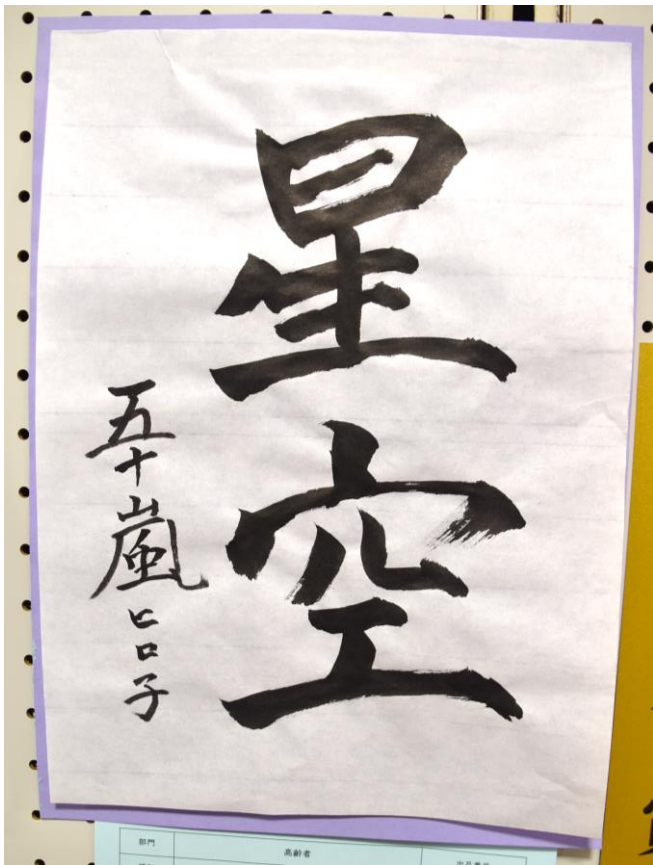 星空
五十嵐ヒロ子
部門
高齢者